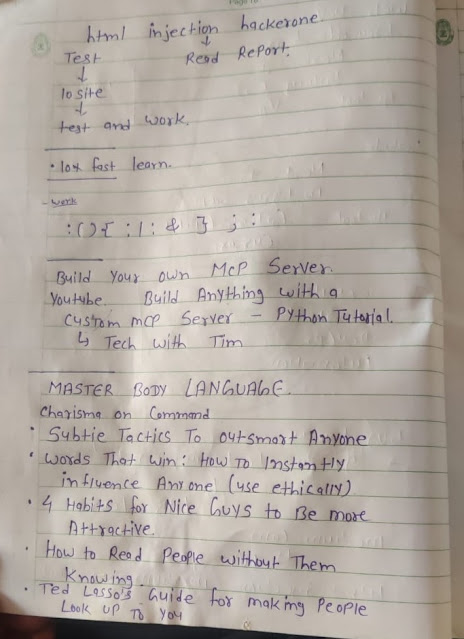 html injection hackerone.
Test
↓
10 site
↓
test and work.
↓
Read Report.
• 10x fast learn.
- work
:(){ :|: & } ; :
Build Your own MCP Server.
Youtube. Build Anything with a
Custom mcp Server - Python Tutorial.
↳ Tech with Tim
MASTER BODY LANGUAGE.
Charisma on Command
• Subtle Tactics To outsmart Anyone
• Words That win: How To Instantly
influence Anyone (use ethically)
• 4 Habits for Nice Guys to Be more
Attractive.
• How to Read People without Them
Knowing.
• Ted Lasso's Guide for making People
Look up To you